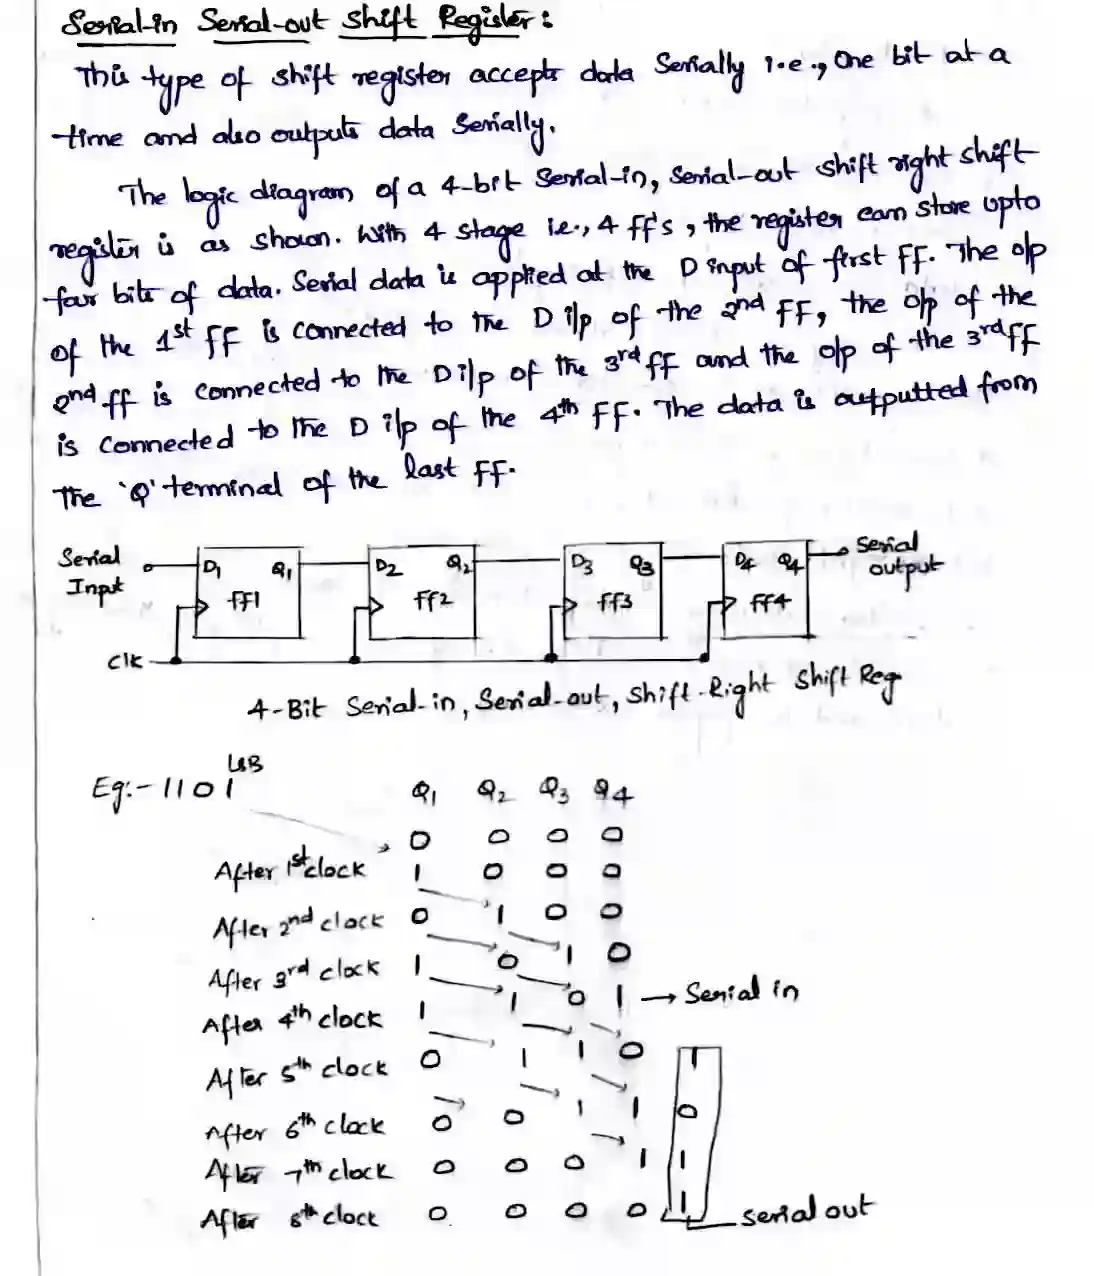 Serial-in Serial-out shift Register:
This type of shift register accepts data Serially i.e., One bit at a
time and also outputs data Serially.
The logic diagram of a 4-bit Serial-in, Serial-out shift right shift
register is as shown. With 4 stage i.e., 4 ff's, the register can store upto
four bits of data. Serial data is applied at the D input of first FF. The o/p
of the 1st FF is connected to the D i/p of the 2nd FF, the o/p of the
2nd ff is connected to the D i/p of the 3rd ff and the o/p of the 3rd ff
is connected to the D i/p of the 4th FF. The data is outputted from
The 'Q' terminal of the last FF.
Serial Input D1 Q1 D2 Q2 D3 Q3 D4 Q4 Serial output
ff1 ff2 ff3 ff4
Clk
4-Bit Serial-in, Serial-out, Shift-Right Shift Reg
LSB
Eg:- 1101 Q1 Q2 Q3 Q4
0 0 0 0
After 1st clock 1 0 0 0
After 2nd clock 0 1 0 0
After 3rd clock 1 0 1 0
After 4th clock 1 1 0 1 → Serial in
After 5th clock 0 1 1 0 1
After 6th clock 0 0 1 1 0
After 7th clock 0 0 0 1 1
After 8th clock 0 0 0 0 1 serial out